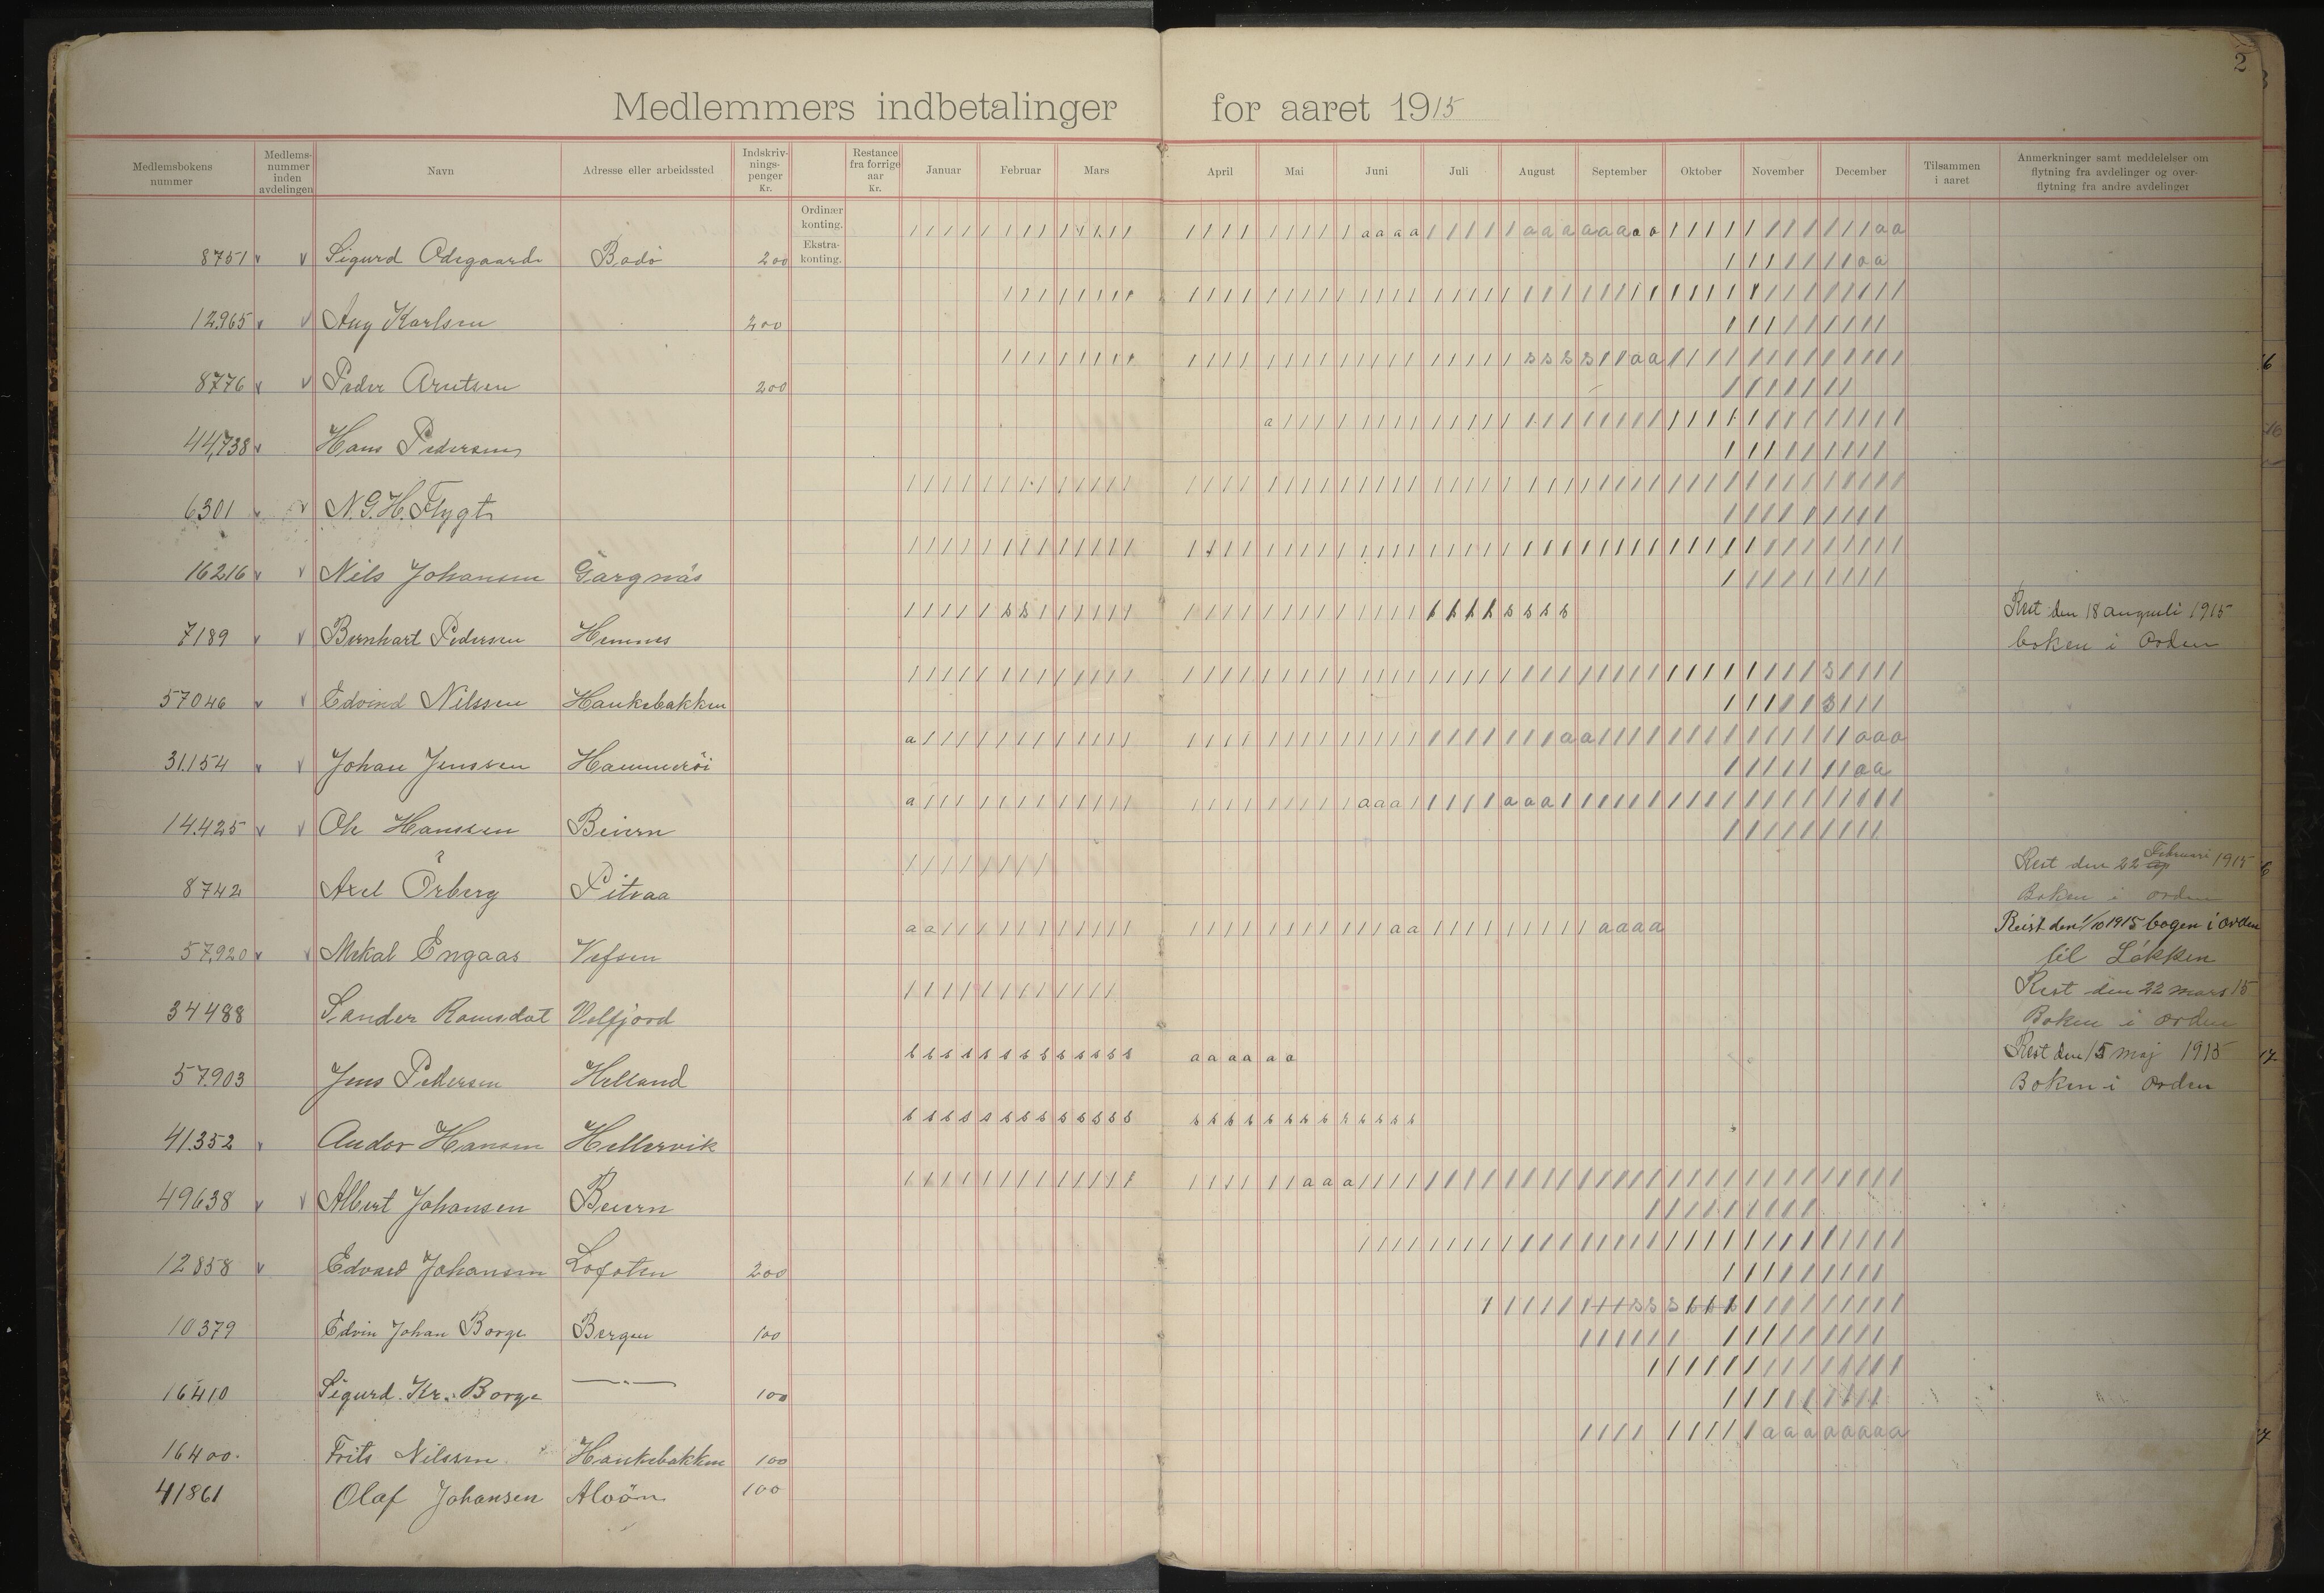 2
Medlemmers indbetalinger for aaret 1915
Medlemsbokens nummer
Medlems-nummer inden avdelingen
Navn
Adresse eller arbeidssted
Indskriv-nings-penger Kr.
Restance fra forrige aar Kr.
Januar Februar Mars April Mai Juni Juli August September Oktober November December
Tilsammen i aaret
Anmerkninger samt meddelelser om flytning fra avdelinger og over-flytning fra andre avdelinger
Ordinær konting.
Ekstra-konting.
8751 v v Sigurd Odegaard Bodö 200
12965 v v Aug Karlsen 200
8776 v v Peder Arntsen 200
44,738 v Hans Pedersen
6301 v v N.G.H. Flygt
16216 v v Nils Johansen Gargnäs
7189 v v Bernhart Pedersen Hemnes Rest den 18 augusti 1915
boken i Orden
57046 v v Edvind Nilssen Haukebakken
31.154 v v Johan Jenssen Hammeröi
14.425 v v Ole Hanssen Beiern
8742 Axel Örberg Piteaa Rest den 22 Februari 1915
Boken i orden
57,920 v v Mikal Engaas Vefsen Reist den 1/10 1915 bogen i orden
til Lökken
34488 Sander Ramsdat Velfjord Rest den 22 mars 15
Boken i orden
57.903 Jens Pedersen Helland Rest den 15 maj 1915
Boken i orden
41.352 v Andor Hansen Hellervik
49638 v v Albert Johansen Beiern
12858 v Edvard Johansen Lofoten 200
10379 Edvin Johan Borge Bergen 100
16410 Sigurd. Kr. Borge —"— 100
16400. Frits Nilssen Haukebakken 100
41861 Olaf Johansen 100